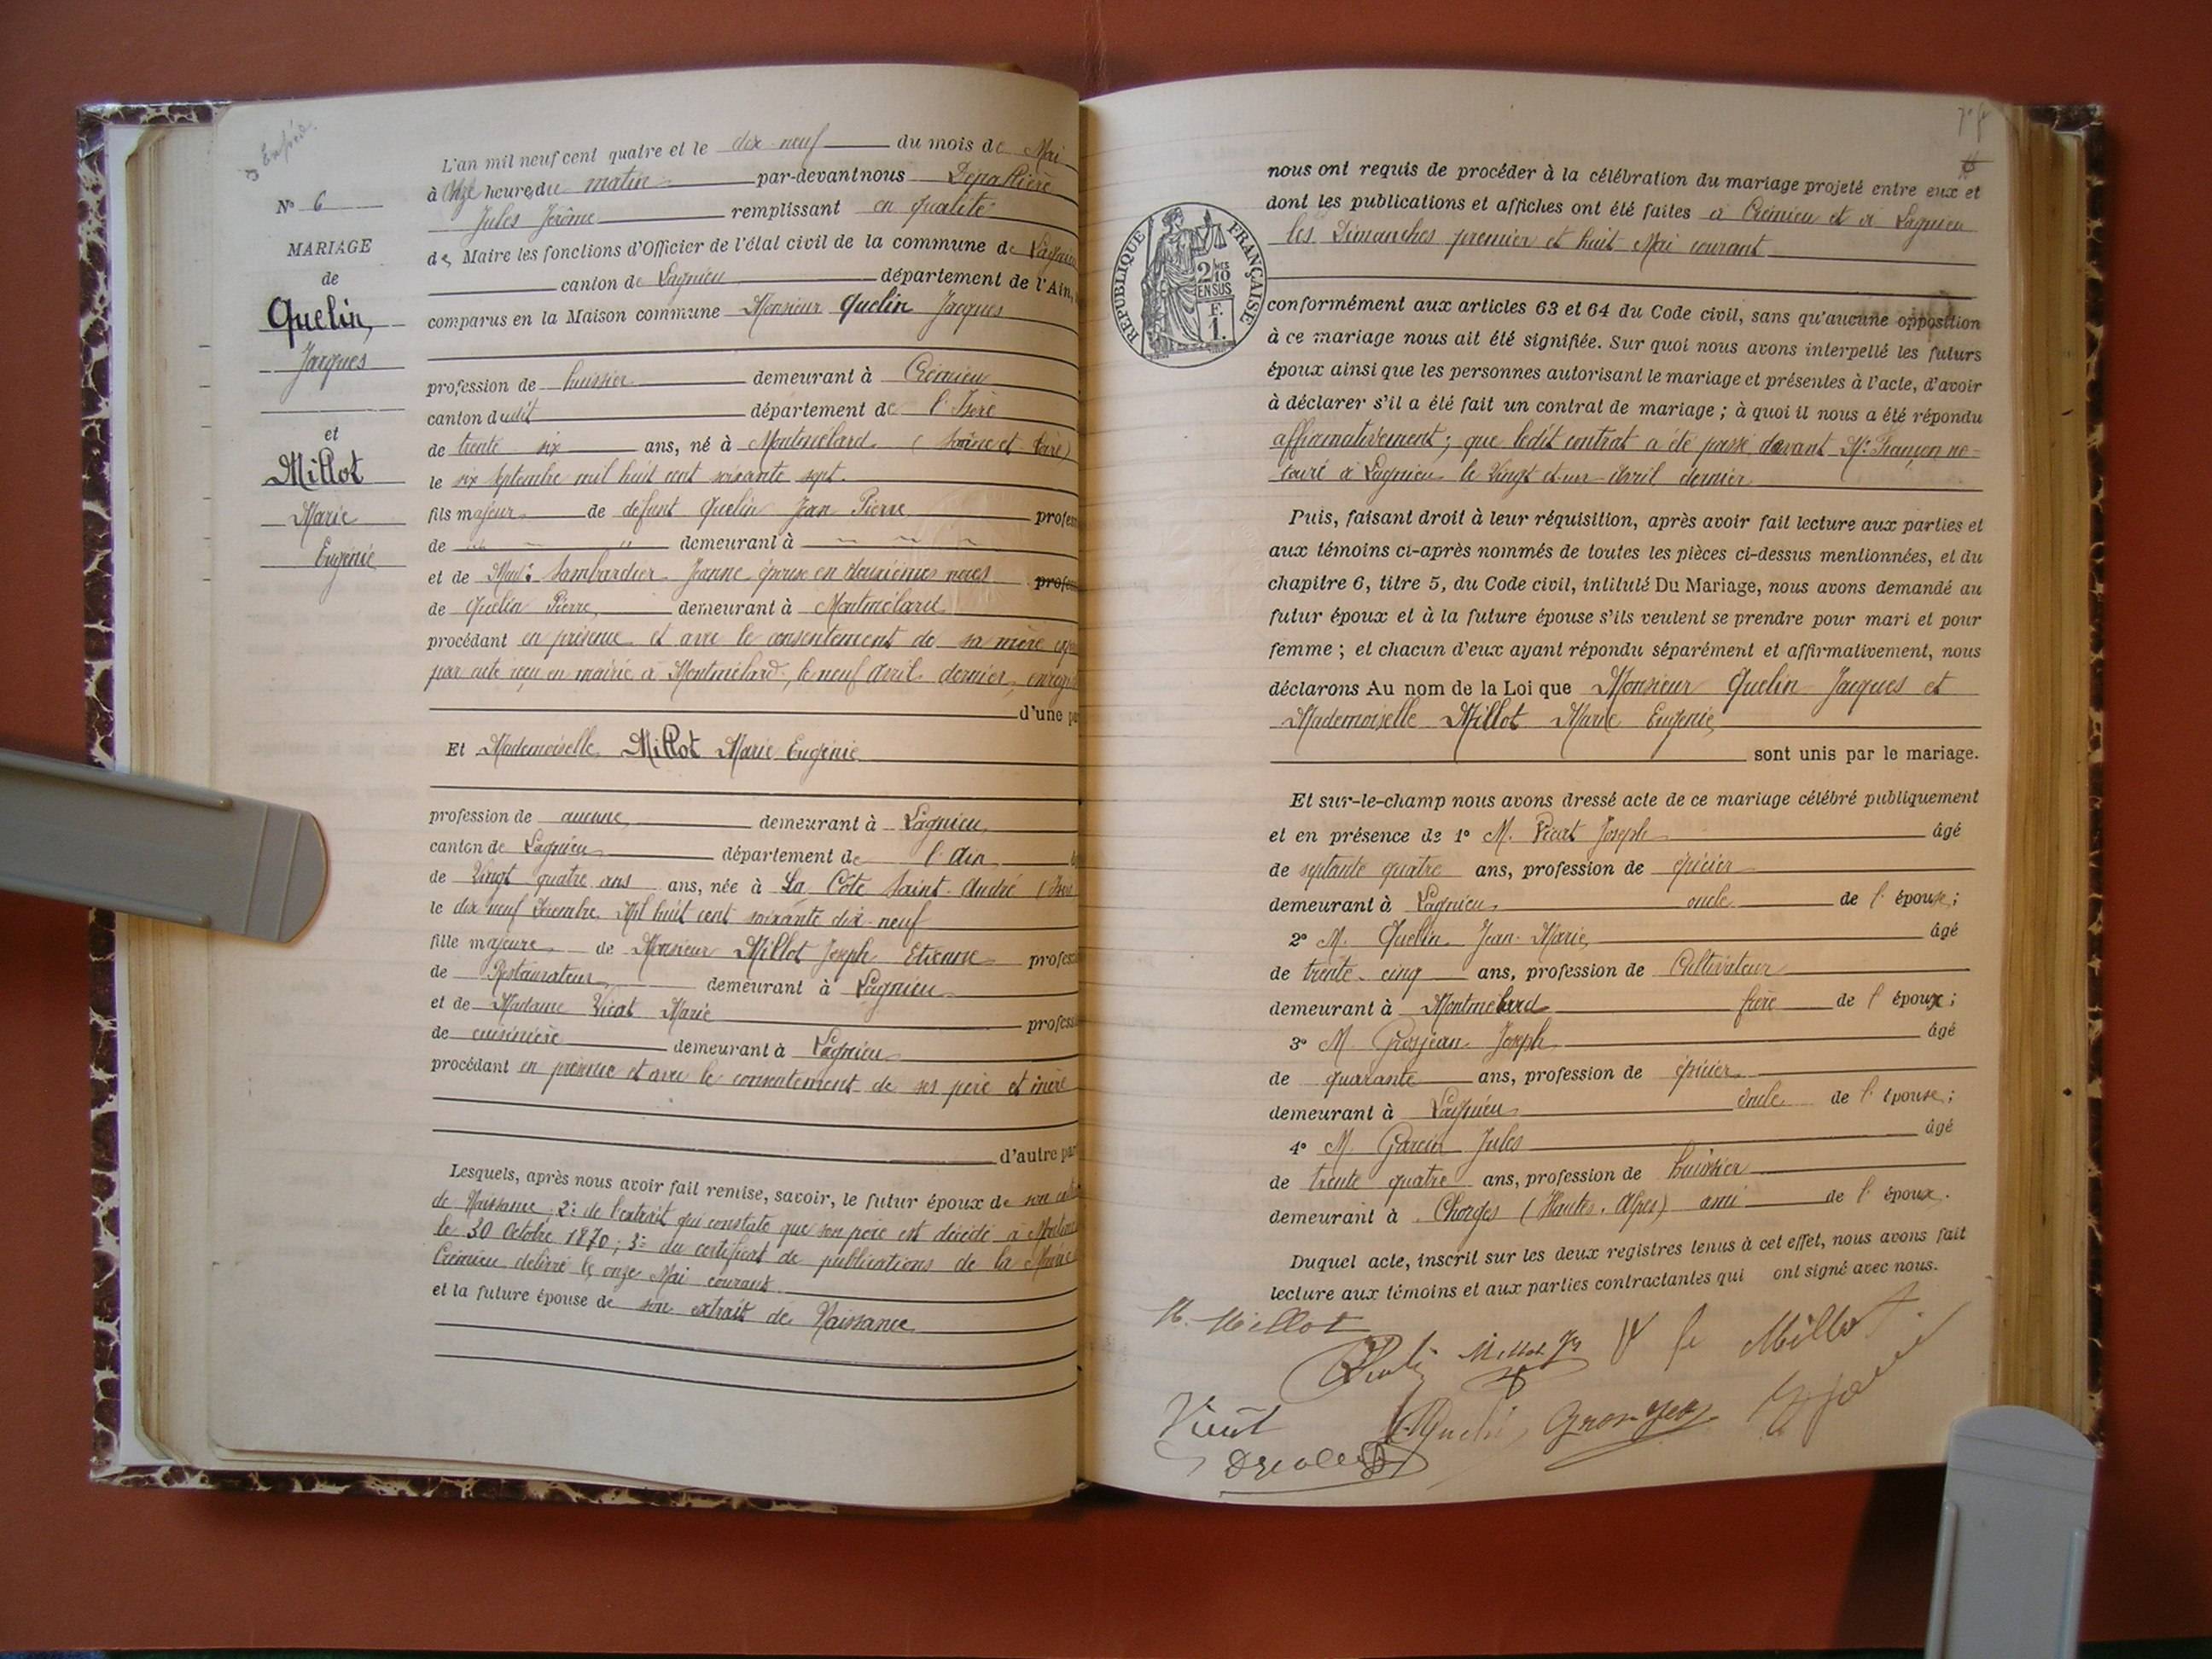 N° 6
MARIAGE
de
Quelin,
Jacques
et
Millot
Marie
Eugénie
L'an mil neuf cent quatre et le dix-neuf du mois de Mai
à Onze heures du matin par-devant nous
Jules Jérôme remplissant en qualité
de Maire les fonctions d'Officier de l'état civil de la commune de Lagnieu
canton de Lagnieu département de l'Ain,
comparus en la Maison commune Monsieur Quelin Jacques
profession de huissier demeurant à Crémieu
canton dudit département de l'Isère
de trente six ans, né à Montmélard (Saône et Loire)
le six Septembre mil huit cent soixante sept.
fils majeur de défunt Quelin Jean Pierre profes
de demeurant à
et de Made Lambardier Jeanne épouse en deuxièmes noces profes
de Quelin Pierre, demeurant à Montmélard
procédant en présence et avec le consentement de sa mère
par acte reçu en mairie à Montmélard, le neuf Avril dernier,
d'une pa
Et Mademoiselle Millot Marie Eugénie
profession de aucune, demeurant à Lagnieu
canton de Lagnieu département de l'Ain
de Vingt quatre ans ans, née à La Côte Saint-André (Isère
le dix neuf Décembre Mil huit cent soixante dix-neuf
fille majeure de Monsieur Millot Joseph Etienne profess
de Restaurateur demeurant à Lagnieu
et de Madame Vicat Marie profess
de cuisinière demeurant à Lagnieu
procédant en présence et avec le consentement de ses père et mère
d'autre par
Lesquels, après nous avoir fait remise, savoir, le futur époux de son
de Naissance, 2° de l'extrait qui constate que son père est décédé à
le 30 Octobre 1870; 3° du certificat de publications de la Mairie
Crémieu délivré le onze Mai courant
et la future épouse de son extrait de Naissance
nous ont requis de procéder à la célébration du mariage projeté entre eux et
dont les publications et affiches ont été faites à Crémieu et à Lagnieu
les Dimanches premier et huit Mai courant
RÉPUBLIQUE FRANÇAISE
2/10
EN SUS
F.
1.
conformément aux articles 63 et 64 du Code civil, sans qu'aucune opposition
à ce mariage nous ait été signifiée. Sur quoi nous avons interpellé les futurs
époux ainsi que les personnes autorisant le mariage et présentes à l'acte, d'avoir
à déclarer s'il a été fait un contrat de mariage ; à quoi il nous a été répondu
affirmativement; que ledit contrat a été passé devant Me no-
à Lagnieu le Vingt et un Avril dernier
Puis, faisant droit à leur réquisition, après avoir fait lecture aux parties et
aux témoins ci-après nommés de toutes les pièces ci-dessus mentionnées, et du
chapitre 6, titre 5, du Code civil, intitulé Du Mariage, nous avons demandé au
futur époux et à la future épouse s'ils veulent se prendre pour mari et pour
femme ; et chacun d'eux ayant répondu séparément et affirmativement, nous
déclarons Au nom de la Loi que Monsieur Quelin Jacques et
Mademoiselle Millot Marie Eugénie
sont unis par le mariage.
Et sur-le-champ nous avons dressé acte de ce mariage célébré publiquement
et en présence de 1° M. Vicat Joseph âgé
de septante quatre ans, profession de épicier
demeurant à Lagnieu oncle de l'épouse;
2° M. Quelin Jean-Marie âgé
de trente-cinq ans, profession de Cultivateur
demeurant à Montmélard frère de l'époux;
3° M. Grosjean Joseph âgé
de quarante ans, profession de épicier
demeurant à Lagnieu oncle de l'épouse;
4° M. Garcin Jules âgé
de trente quatre ans, profession de huissier
demeurant à Chorges (Hautes-Alpes) ami de l'époux.
Duquel acte, inscrit sur les deux registres tenus à cet effet, nous avons fait
lecture aux témoins et aux parties contractantes qui ont signé avec nous.
M. Millot
Millot
Millot
Vicat